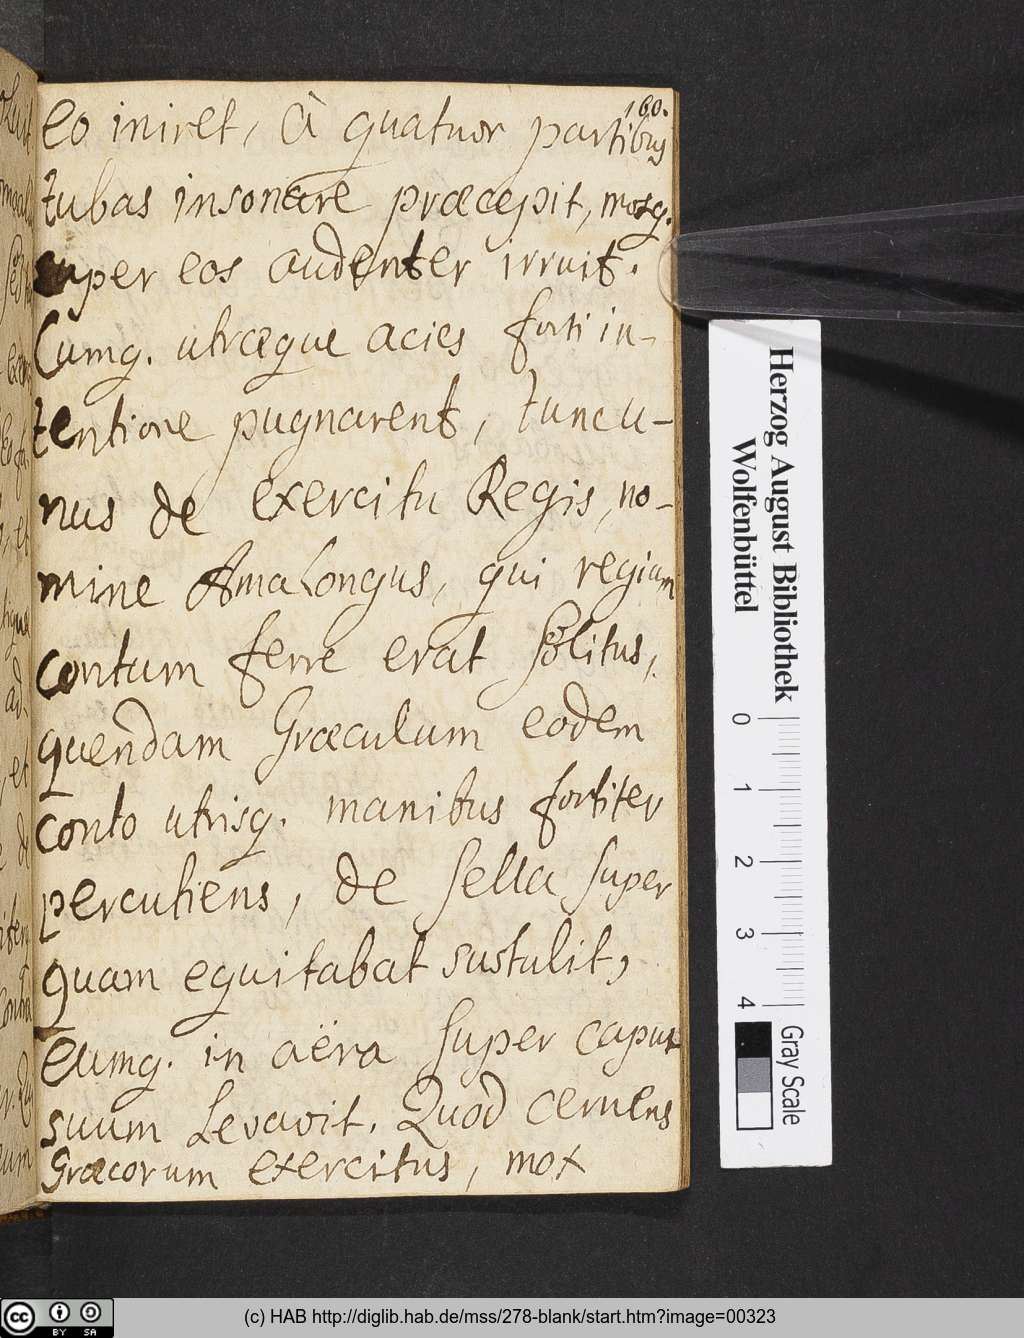 160.
eo iniret, à quatuor partibus
tubas insonare præcepit, moxq.
super eos audenter irruit.
Cumq. utræque acies forti in-
tentione pugnarent, tunc u-
nus de exercitu Regis, no-
mine Amalongus, qui regium
contum ferre erat solitus,
quendam Græculum eodem
conto utrisq. manibus fortiter
percutiens, de sella super
quam equitabat sustulit,
eumq. in aëra super caput
suum levavit. Quod cernens
Græcorum exercitus, mox
Herzog August Bibliothek
Wolfenbüttel
0 1 2 3 4
Gray Scale
cc BY SA
(c) HAB http://diglib.hab.de/mss/278-blank/start.htm?image=00323